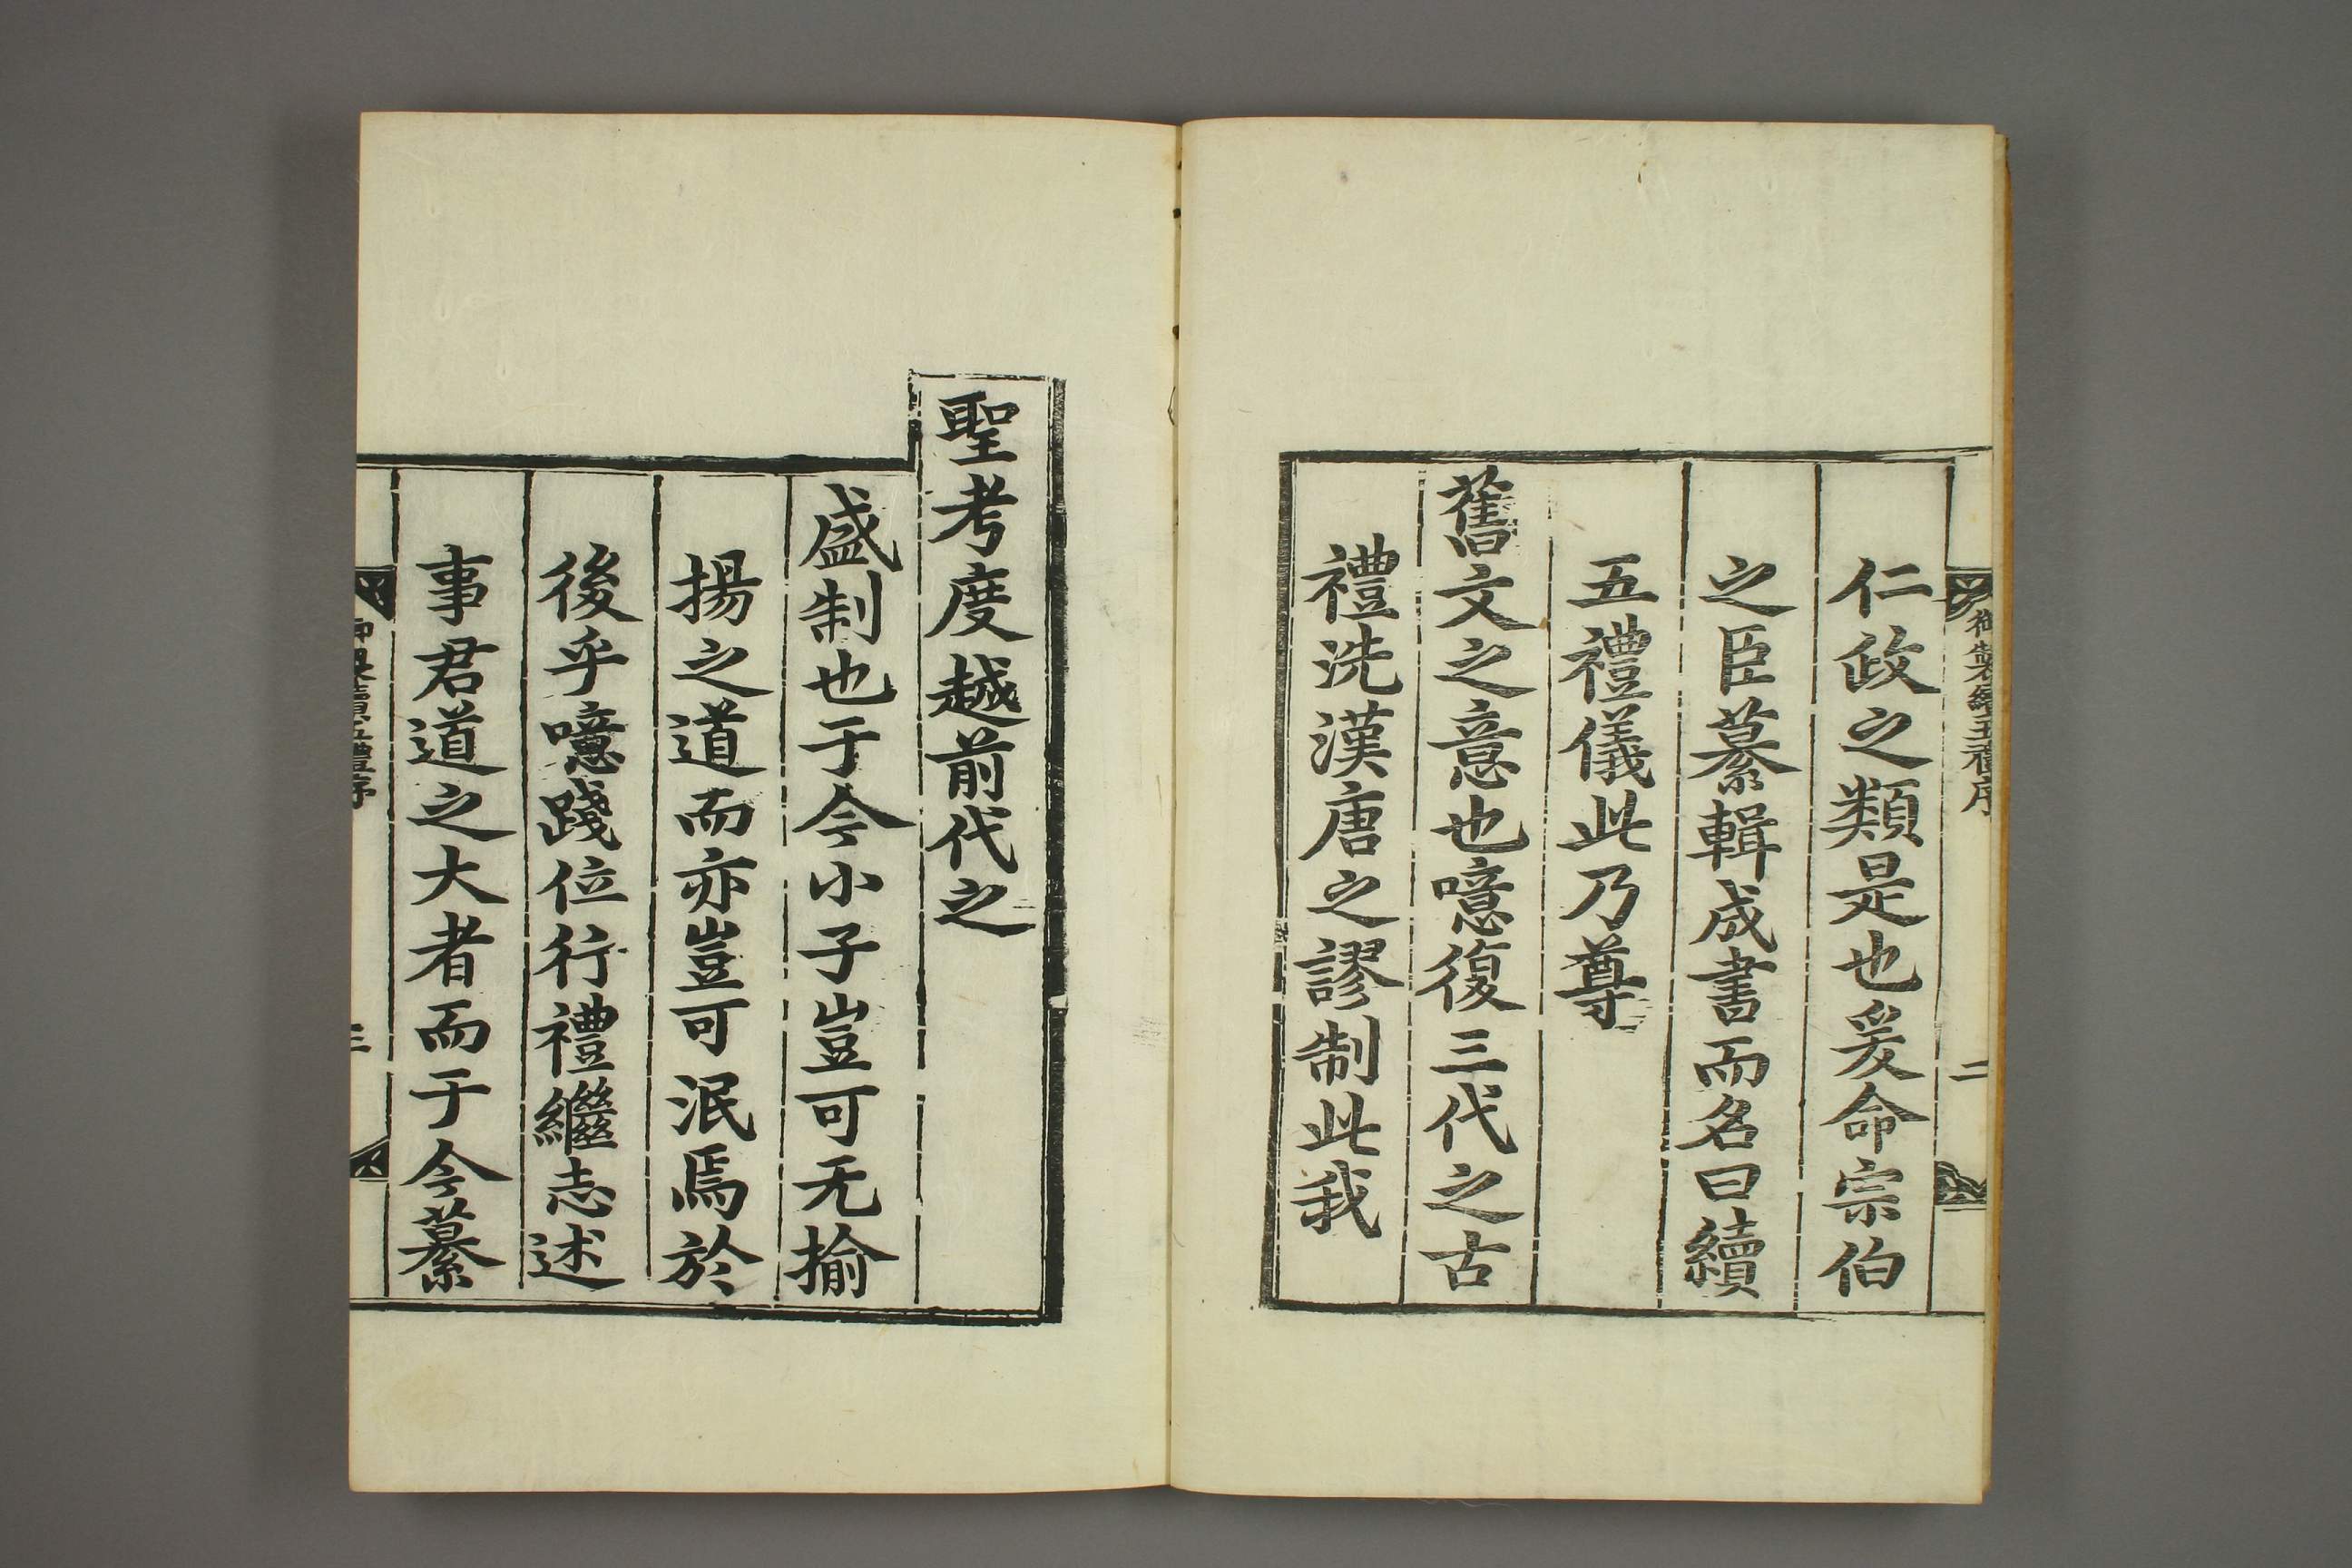 御製續五禮序
二
仁政之類是也爰命宗伯
之臣纂輯成書而名曰續
五禮儀此乃尊
舊文之意也噫復三代之古
禮洗漢唐之謬制此我
聖考度越前代之
盛制也于今小子豈可无揄
揚之道而亦豈可泯焉於
後乎噫踐位行禮繼志述
事君道之大者而于今纂
御製續五禮序
三